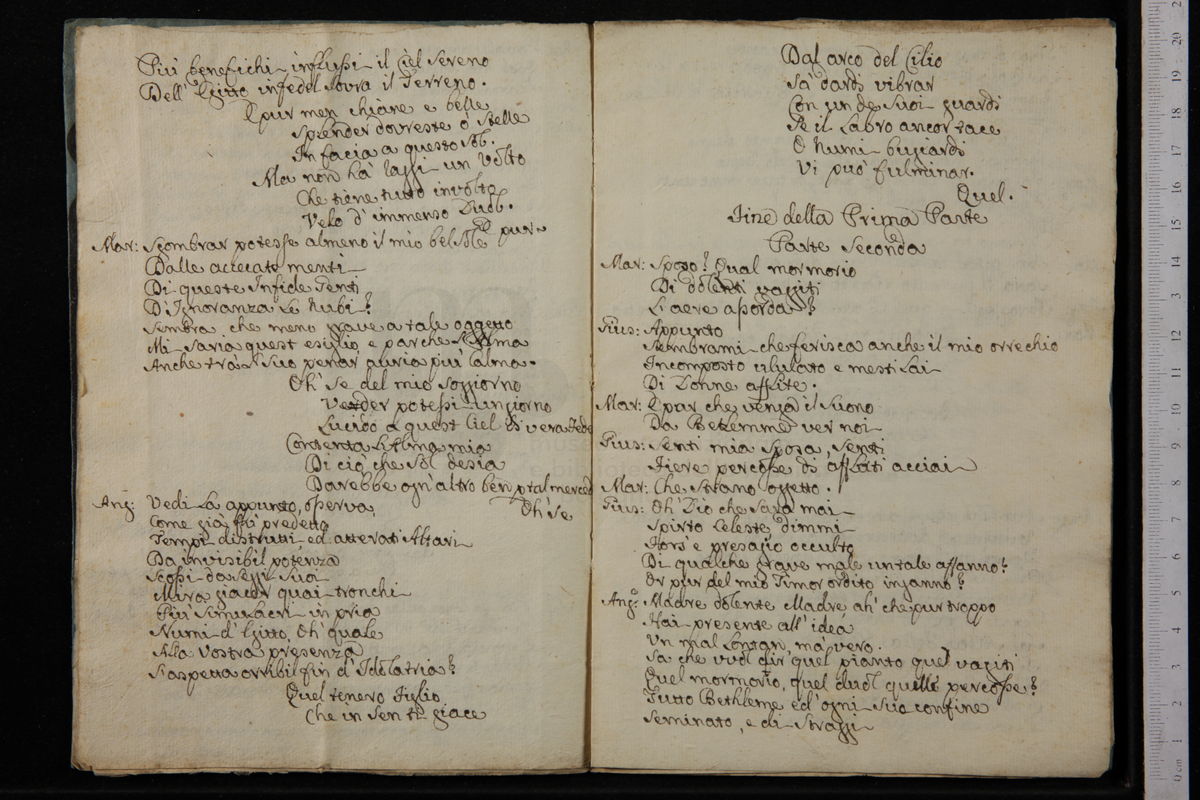 Più benefichi influssi il Ciel sereno
Dell' Egitto infedel sovra il Terreno.
E pur men chiare e belle
Splender dovreste ò Stelle
In facia a questo Sol.
Ma non hà raggi un Volto
Che tiene tutto involto
Velo d' immenso Duol.
E pur
Mar: Sgombrar potesse almeno il mio bel Sole
Dalle accecate menti
Di queste Infide Genti
D' Ignoranza Le Nubi?
Sembra, che meno grave a tale oggetto
Mi saria quest esiglio, e par che L'Alma
Anche trà'l Suo penar, auria più calma.
Oh' se del mio soggiorno
Veder potessi un giorno
Lucido a quest Ciel di vera Fede
Contenta L'Alma mia
Di ciò, che Sol desia
Darebbe ogn' altro ben p tal merced
Oh' se
Ang: Vedi La appunto, osserva,
Come già fù predetto
Tempi distrutti, ed atterati Altari
Da invisibil potenza
Scossi da seggi Suoi
Mira giacer quai tronchi
Più Simulacri in pria
Numi d' Egitto, Oh' quale
Alla Vostra presenza
S'aspetta orribil fin d' Idolatria?
Quel tenero Giglio
Che in sen ti giace
Dal arco del Cilio
Sà dardi vibrar
Con un de Suoi guardi
Se il Labro ancor tace
O Numi bugiardi
Vi può fulminar.
Quel.
Fine della Prima Parte
Parte Seconda
Mar: Sposo? Qual mormorio
Di dolenti vagiti
L'aere assorda?
Gius: Appunto
Sembrami che ferisca anche il mio orrechio
Incomposto ululato e mesti Lai
Di Donne afflite.
Mar: E par che venga il Suono
Da Betlemme ver noi
Gius: Senti mia Sposa, Senti
Fiere percosse di affilati acciai
Mar: Che Strano oggetto.
Gius: Oh' Dio che sarà mai
Spirto Celeste dimmi
Fors' è presagio occulto
Di qualche grave male un tale affanno?
Or pur del mio Timor ordito inganno?
Ang: Madre dolente Madre ah' che pur troppo
Hai presente all' idea
Un mal Lontan, mà vero.
Sà che vuol dir quel pianto quel vagiti
Quel mormorio, quel duol quelle percosse?
Tutto Bethleme ed' ogni Suo confine
Seminato, e di Straggi